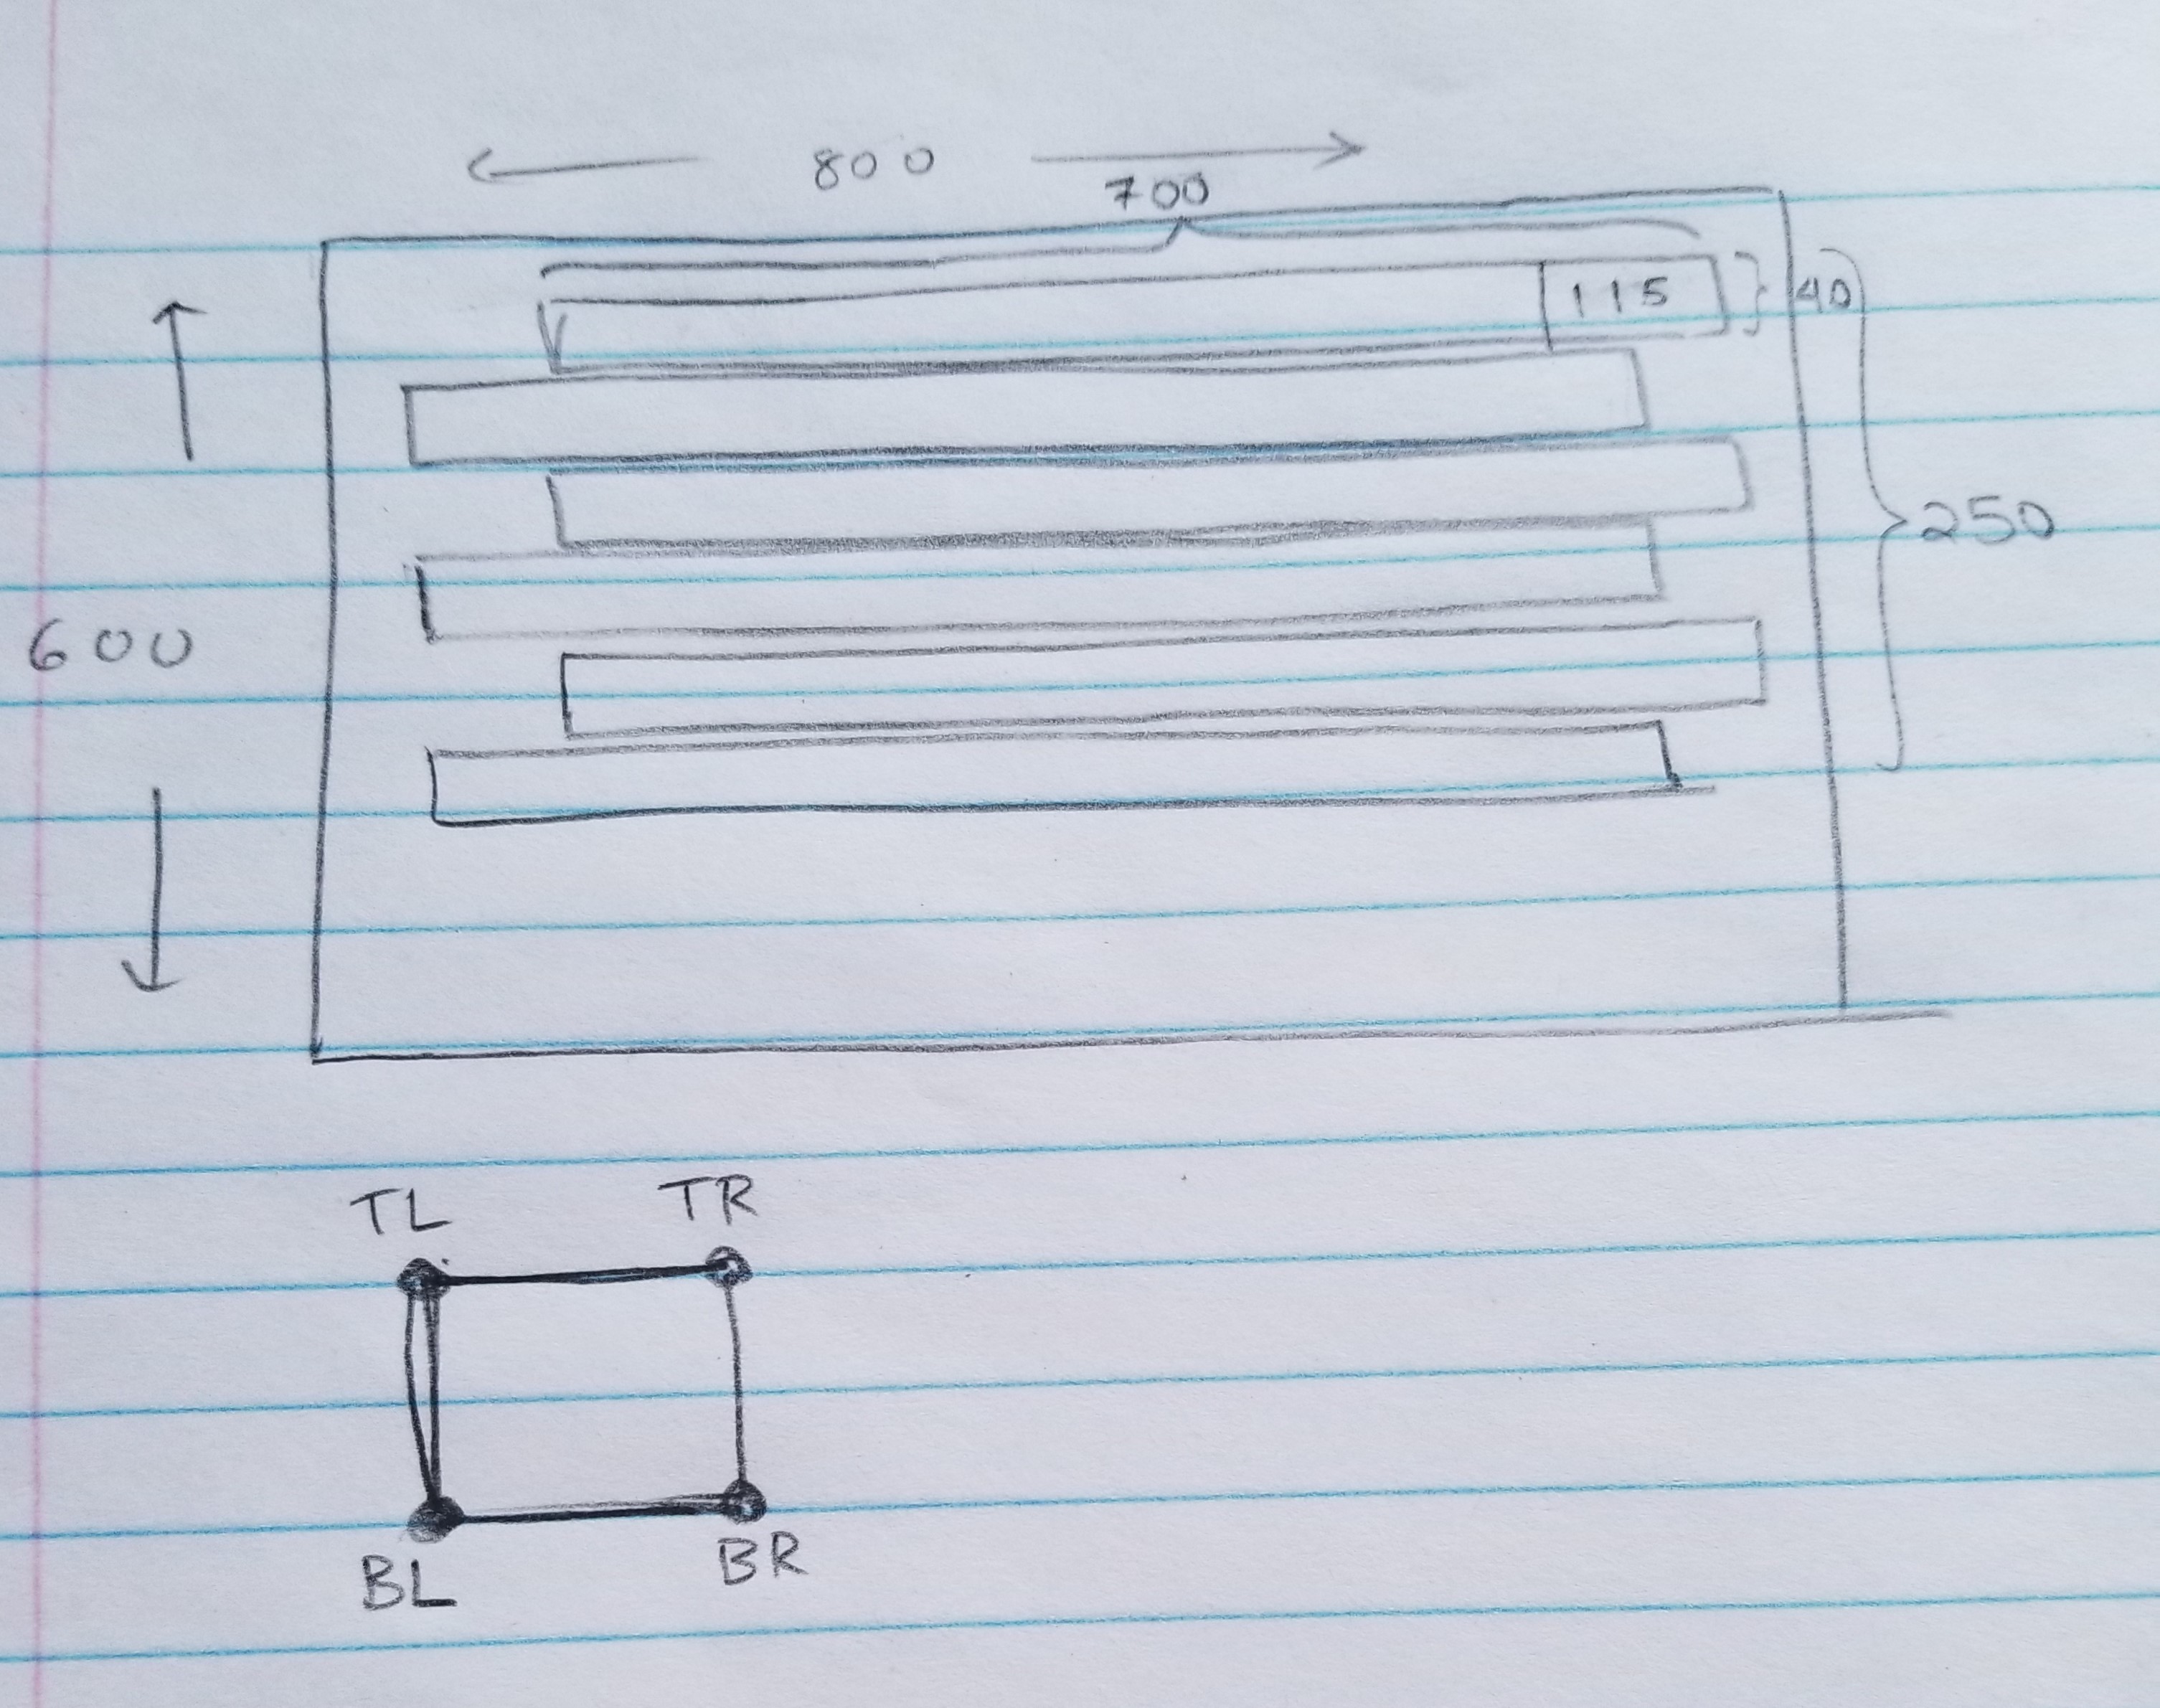 800
700
115
40
250
600
TL TR
BL BR